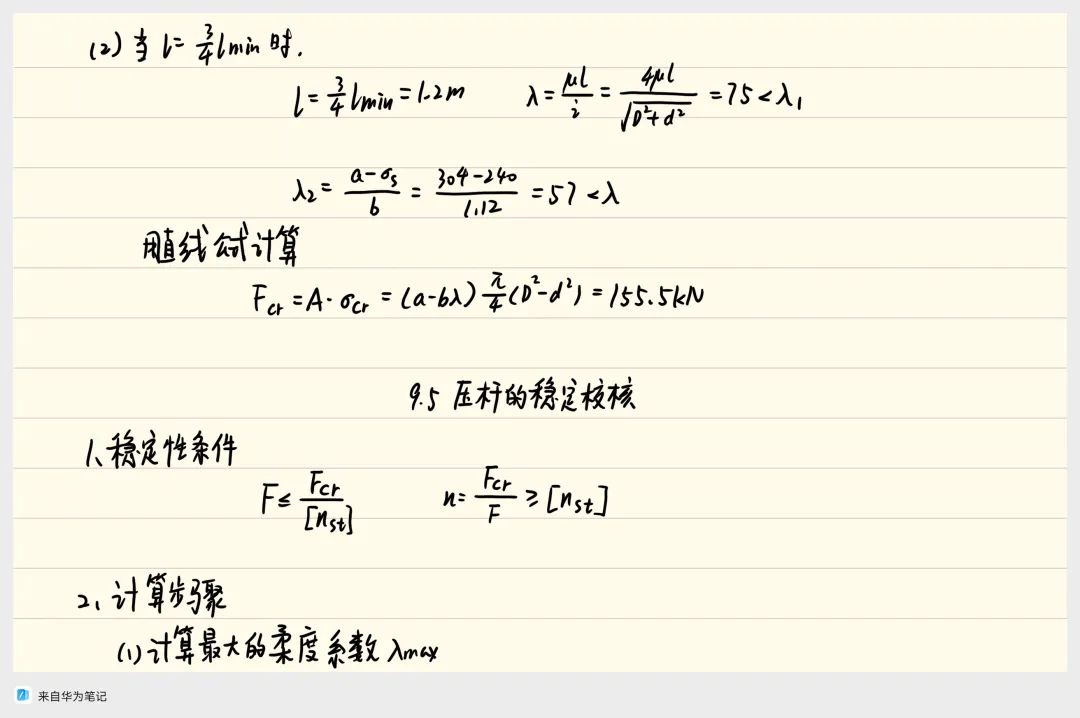 (2) 当 l = 3/4 lmin 时.
l = 3/4 lmin = 1.2m λ = μl/i = 4μl/√(D²+d²) = 75 < λ₁
λ₂ = (a-σs)/b = (304-240)/1.12 = 57 < λ
用直线公式计算
Fcr = A·σcr = (a-bλ) π/4 (D²-d²) = 155.5kN
9.5 压杆的稳定校核
1、稳定性条件
F ≤ Fcr/[nst] n = Fcr/F ≥ [nst]
2、计算步骤
(1) 计算最大的柔度系数 λmax
来自华为笔记